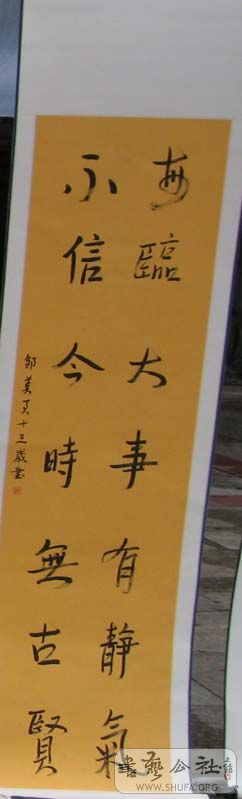 每臨大事有靜氣
不信今時無古賢
十三歲書
書藝公社
WWW.SHUFA.ORG